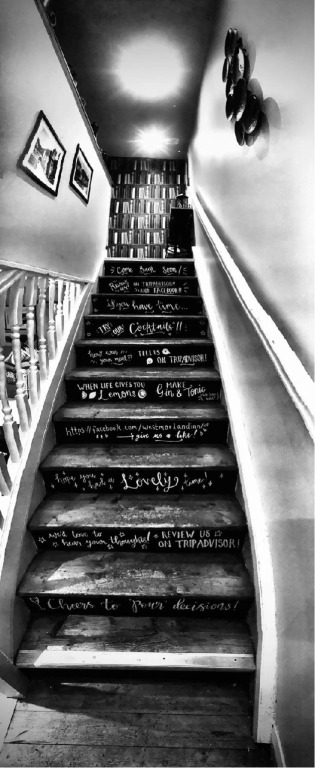 Come Back Soon!
Review us! ON TRIPADVISOR AND FACEBOOK!
if you have time...
TRY OUR Cocktails!!
how was your meal? TELL US ON TRIPADVISOR!
WHEN LIFE GIVES YOU Lemons MAKE Gin & Tonic
https://facebook.com/westmorlandinn/
give us a like!
hope you had a Lovely time!
we'd love to hear your thoughts! REVIEW US ON TRIPADVISOR!
Cheers to pour decisions!